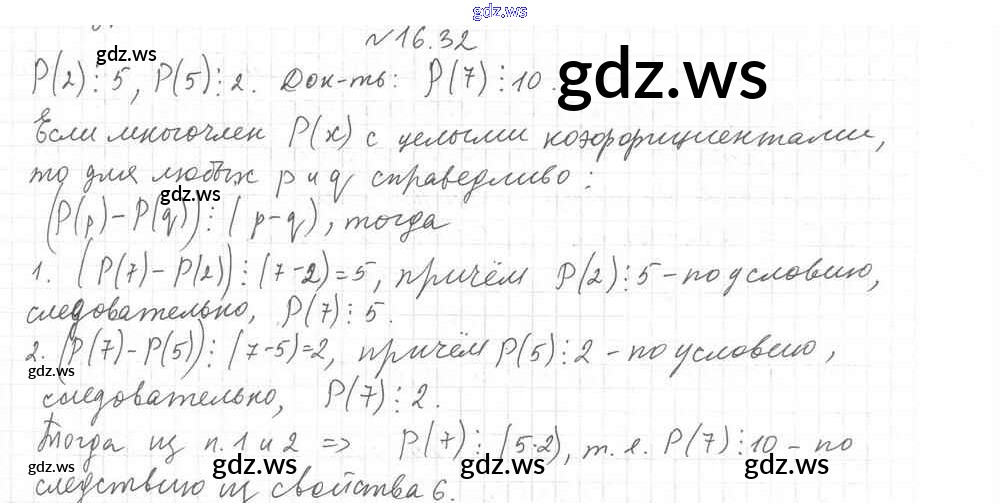 gdz.ws
№16.32
gdz.ws
P(2)⋮5, P(5)⋮2. Док-ть: P(7)⋮10.
gdz.ws
Если многочлен P(x) с целыми коэффициентами,
то для любых p и q справедливо:
gdz.ws
(P(p)-P(q))⋮(p-q), тогда
1. (P(7)-P(2))⋮(7-2)=5, причём P(2)⋮5 - по условию,
следовательно, P(7)⋮5.
2. (P(7)-P(5))⋮(7-5)=2, причём P(5)⋮2 - по условию,
gdz.ws
следовательно, P(7)⋮2.
Тогда из п. 1 и 2 => P(7)⋮(5·2), т.е. P(7)⋮10 - по
gdz.ws gdz.ws gdz.ws gdz.ws
следствию из свойства 6.